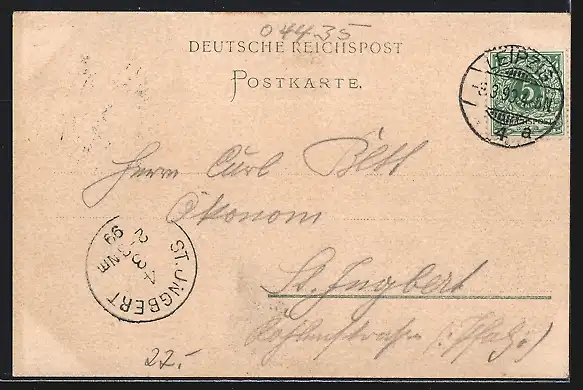 04435
DEUTSCHE REICHSPOST
POSTKARTE.
LEIPZIG
4 a
5
Herrn Carl
Ökonom
St. Ingbert
Kohlenstraße (Pfalz)
ST. INGBERT
4 3
2-3 NM
99
22.-